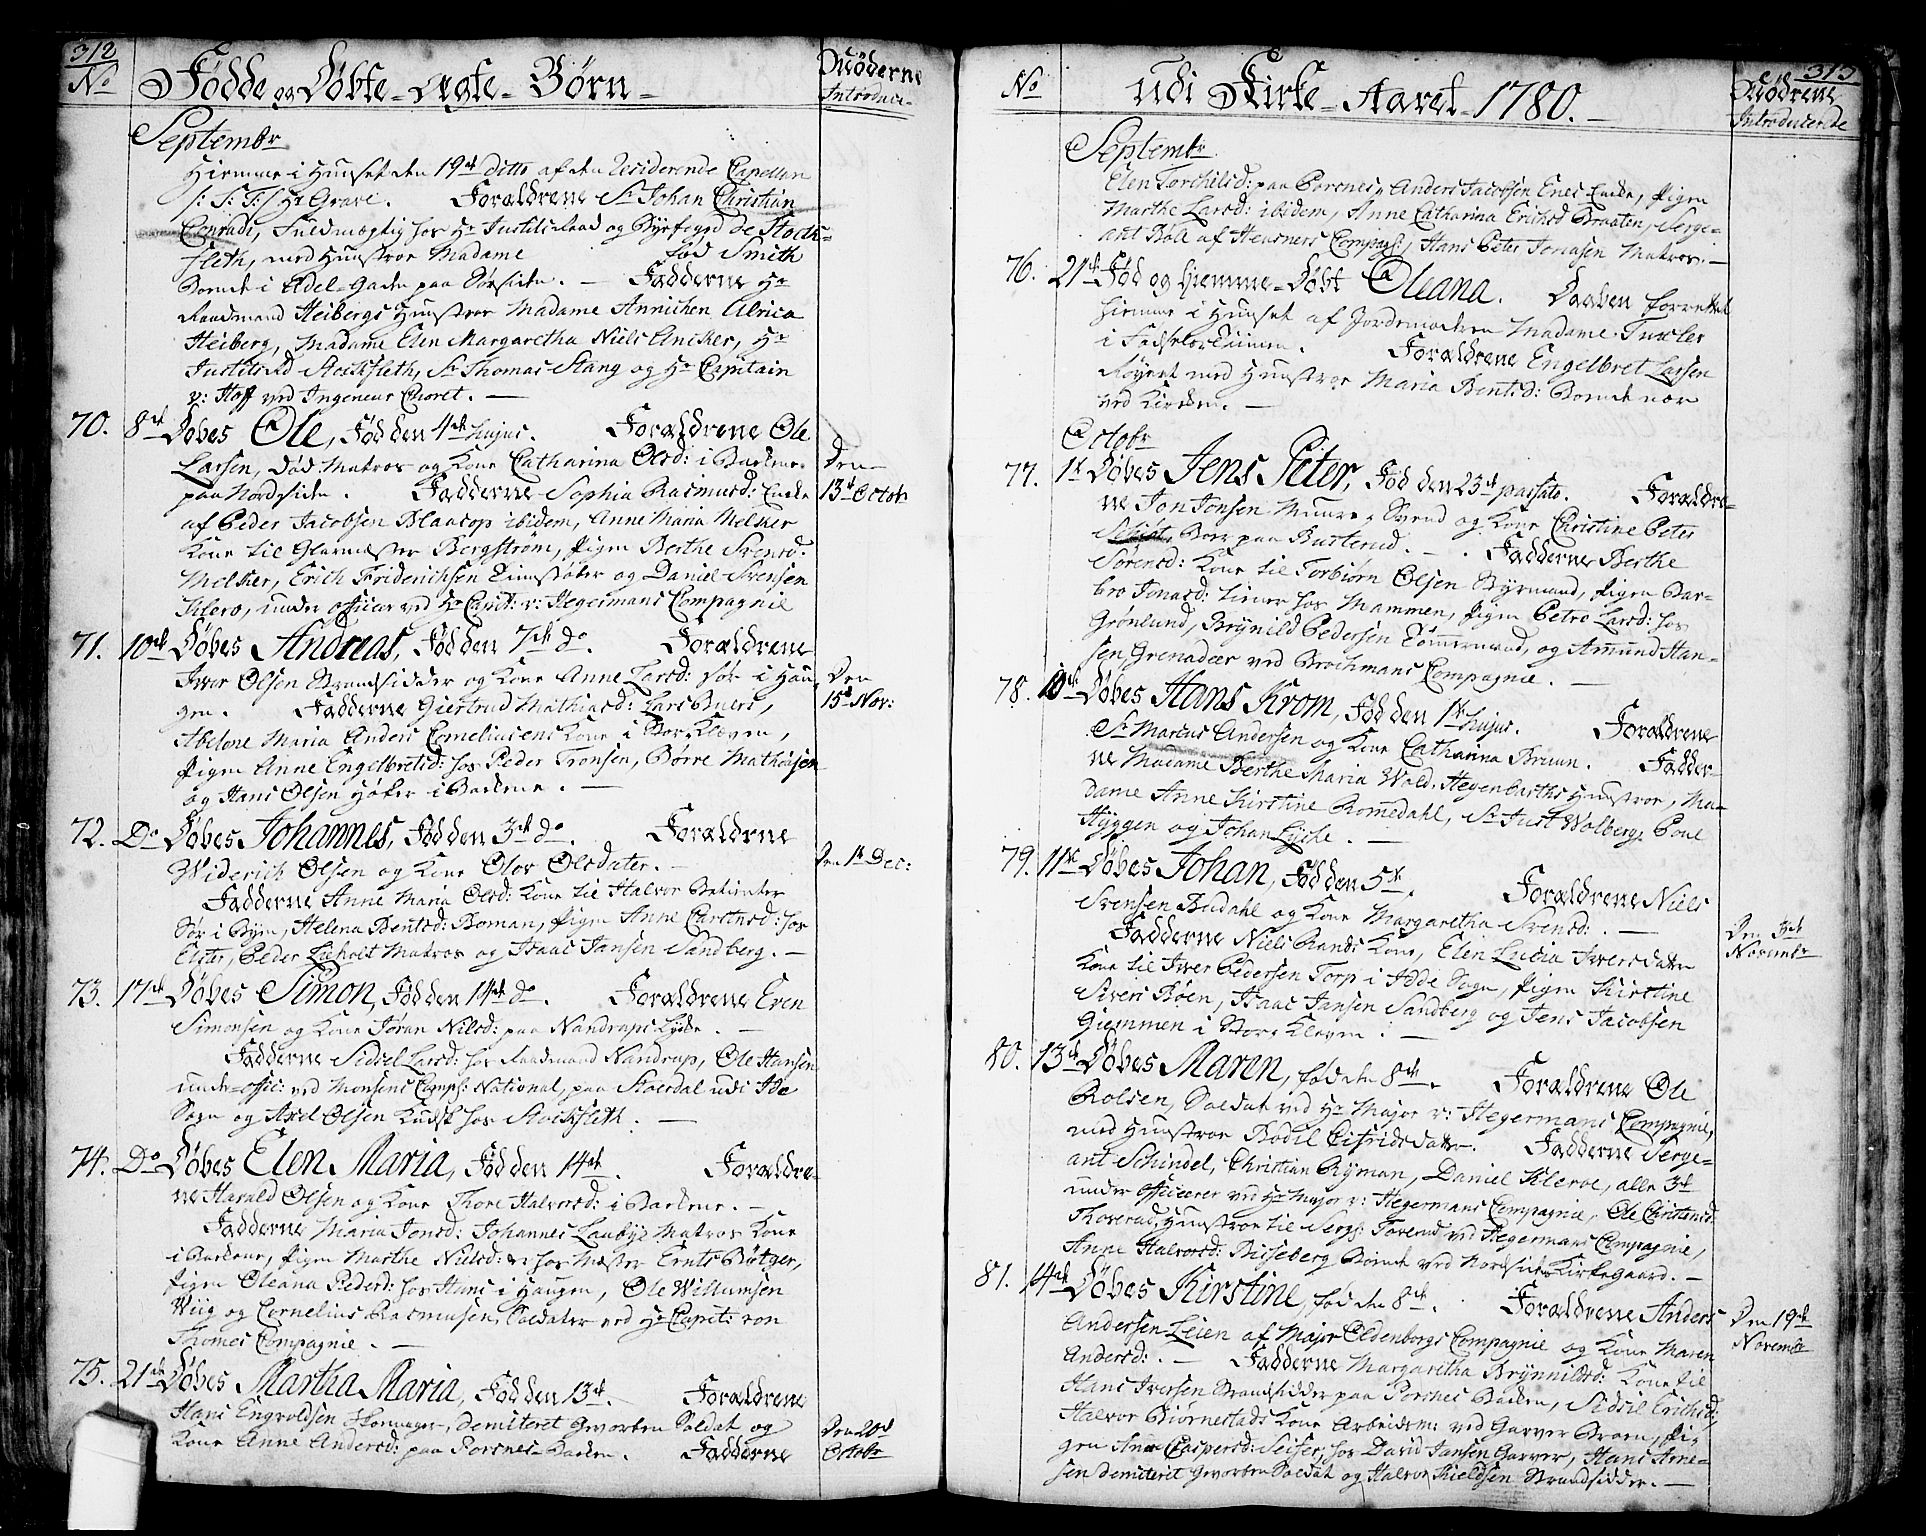 312
No
Fødde og Døbte Ægte Børn
Møderne
Introduce-
Septembr
Hiemme i Huuset den 19de ditto af den Residerende Capellan
/: S: T:/ Hr Grave. Forældrene Sr Johan Christian
Conradi, Fuldmægtig hos Hr Justits Raad og Byefogd de Stock-
fleth, med Hustroe Madame fød Smith
Boende i Adel-Gaden paa Sørsiden. Fadderne Hr
Raadmand Heibergs Hustroe Madame Annichen Ulrica
Heiberg, Madame Elen Margaretha Niels Ancker, Hr
Justitsrd Stockfleth, Sr Thomas Stang og Hr Capitain
v: Hoff ved Ingeneur Choret.
70. 8de Døbes Ole, Fød den 4de hujus. Forældrene Ole
Larsen, død Matros og Kone Catharina Olsd: i Bankene
paa Nordsiden. Fadderne Sophia Rasmusd: Encke
Den
13d Octobr
af Peder Jacobsen Blaatop ibidem, Anne Maria Melker
Kone til Glarmester Bergstrøm, Pigen Berthe Svensd:
Melker, Erich Friderichsen Timstøber og Daniel Svensen
Klero, under officer ved Hr Capit: v: Hegermans Compagnie
71. 10de Døbes Andreas, Fød den 7de do. Forældrene
Iver Olsen Strandsidder og Kone Anne Larsd: Sør i Hau-
gen. Fadderne Giertrud Mathiasd: Lars Buers,
Den
15d Nov:
Abelone Maria Anders Corneliusens Kone i Borr Kleven,
Pigen Anne Engelbretsd: hos Peder Tronsen, Børre Mathisen
og Hans Olsen Høker i Bankene.
72. Do Døbes Johannes, Fød den 3de do. Forældrene
Widerich Olsen og Kone Olov Olsdater.
Den 1t Dec:
Fadderne Anne Maria Olsd: Kone til Halvor
Sør i Byen, Helena Bentsd: Boman, Pigen Anne Carstensd: hos
Elster, Peder Lieholt Matros og Isaac Jansen Sandberg.
73. 17de Døbes Simon, Fød den 14de do. Forældrene Even
Simonsen og Kone Jøran Nilsd: paa Nandrups Lycke.
Fadderne Sidsel Larsd: hos Raadmand Nandrup, Ole Hansen
under-offic: ved Monsens Comps: National, paa Stoerdal udi Ide
Sogn og Axel Olsen Kudsk hos Stockfleth.
74. Do Døbes Elen Maria, Fød den 14de. Forældre-
ne Harald Olsen og Kone Thore Halvorsd: i Bankene.
Fadderne Maria Jonsd: Johannes Laubys Matros Kone
i Bankene, Pigen Marthe Nielsd: hos Mester Ernts Bøtger,
Pigen Oleana Pedersd: hos Hans i Haugen, Ole Willumsen
Wiig og Cornelius Rasmusen, Soldater ved Hr Capit: von
Thomes Compagnie.
75. 21de Døbes Martha Maria, Fød den 13de. Forældrene
Hans Engvoldsen, demiteret Gevorben Soldat og
Kone Anne Andersd: paa Porsnes Backen. Fadderne
Den 20d
Octobr
313
No
udi Kirke-Aaret 1780.
Mødrene
Introducerede
Septembr
Elen Torchelsd: paa Porsnes, Anders Jacobsen Enes Encke, Pigen
Marthe Larsd: ibidem, Anne Catharina Erichsd Braaten, Serge-
ant Røll af Heusners Comps:, Hans Peter Jonasen Matros.
76. 21de Fød og Hiemme-Døbt Oleana. Daaben forrettet
hiemme i Huuset af Jordemoderen Madame Tuxler
i Fødselsstunden. Forældrene Engelbret Larsen
Røyert med Hustroe Maria Bentsd: Boende nær
ved Kirken.
Octobr
77. 1te Døbes Jens Peter, Fød den 23de passato. Forældre-
ne Jon Jonsen Muure Svend og Kone Christine Peter
Schiøt, Boer paa Busterud. Fadderne Berthe
Sørensd: Kone til Torbiørn Olsen Byemand, Pigen Bar-
bro Jonasd: tiener hos Mammen, Pigen Petro Larsd: hos
Grønlund, Brynild Pedersen Tømmermand, og Amund Han-
sen Grenadeer ved Brochmans Compagnie.
78. 10de Døbes Hans Krom, Fød den 1te hujus. Forældrene
Sr Marcus Andersen og Kone Catharina Bruun. Fadder-
ne Madame Berthe Maria Wold, Hegenbarths Hustroe, Ma-
dame Anne Kirstine Romedahl, Sr Just Wolberg, Poul
Hyggen og Johan Lycke.
79. 11te Døbes Johan, Fød den 5te. Forældrene Niels
Svensen Budahl og Kone Margaretha Svensd:.
Fadderne Niels Rands Kone, Elen Lucia Iversdatter
Den 3de
Novembr
Kone til Iver Pedersen Torp i Idde Sogn, Pigen Kirstine
Sivers Røen, Isaac Jansen Sandberg og Jens Jacobsen
Giemmen i Borr Kleven.
80. 13de Døbes Maren, fød den 8de. Forældrene Ole
Rolsen, Soldat ved Hr Major v: Hegermans Compagnie,
med Hustroe Bodil Eisridsdatter. Fadderne Serge-
ant Schindel, Christian Ryman, Daniel Kleroe, alle 3de
under Officerer ved Hr Major v: Hegermans Compagnie, Ole Christensd:
Thoverud, Hustroe til Serg: Toverud ved Hegermans Compagnie,
Anne Halvorsd: Busseberg Boende ved Nordsidens Kirkegaard.
81. 14de Døbes Kirstine, fød den 8de. Forældrene Anders
Andersen Leien af Major Oldenborgs Compagnie og Kone Maren
Andersd:. Fadderne Margaretha Brynnildsd: Kone til
Den 19de
Novembr
Hans Iversen Strandsidder paa Porsnes Backen, Sidsil Erichsd:
Halvor Biørnestads Kone Arbeidsm: ved Garver Broen, Pi-
gen Ane Caspersd: Seiser, hos David Jansen Garver, Hans Arne-
sen demiteret Gevorben Soldat og Halvor Kieldsen Strandsidder.